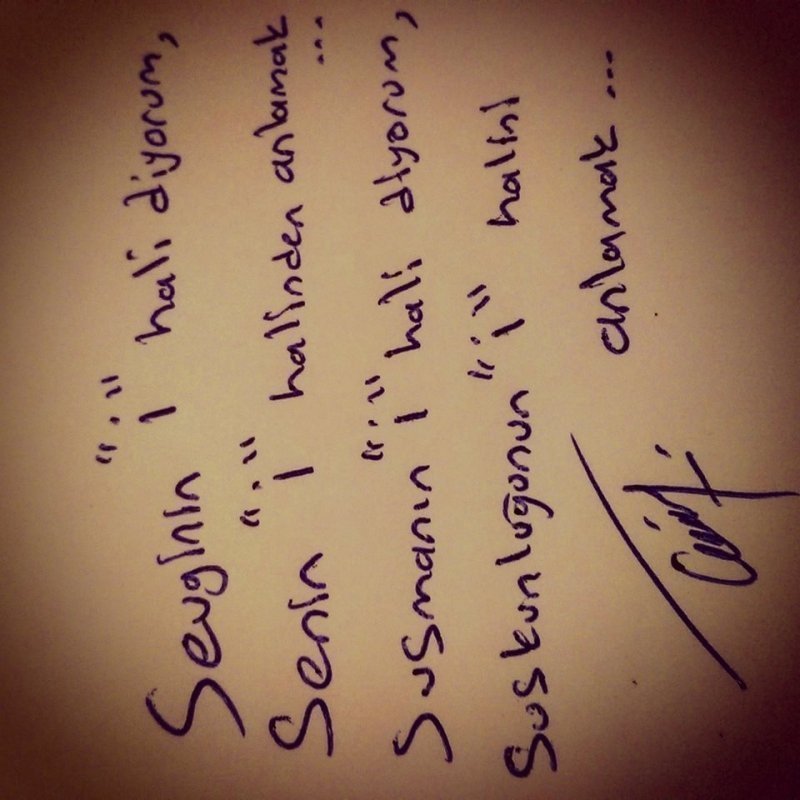 Sevginin "i" hali diyorum,
Senin "i" halinden anlamak
...
Susmanın "i" hali diyorum,
Suskunluğunun "i" halini
anlamak...